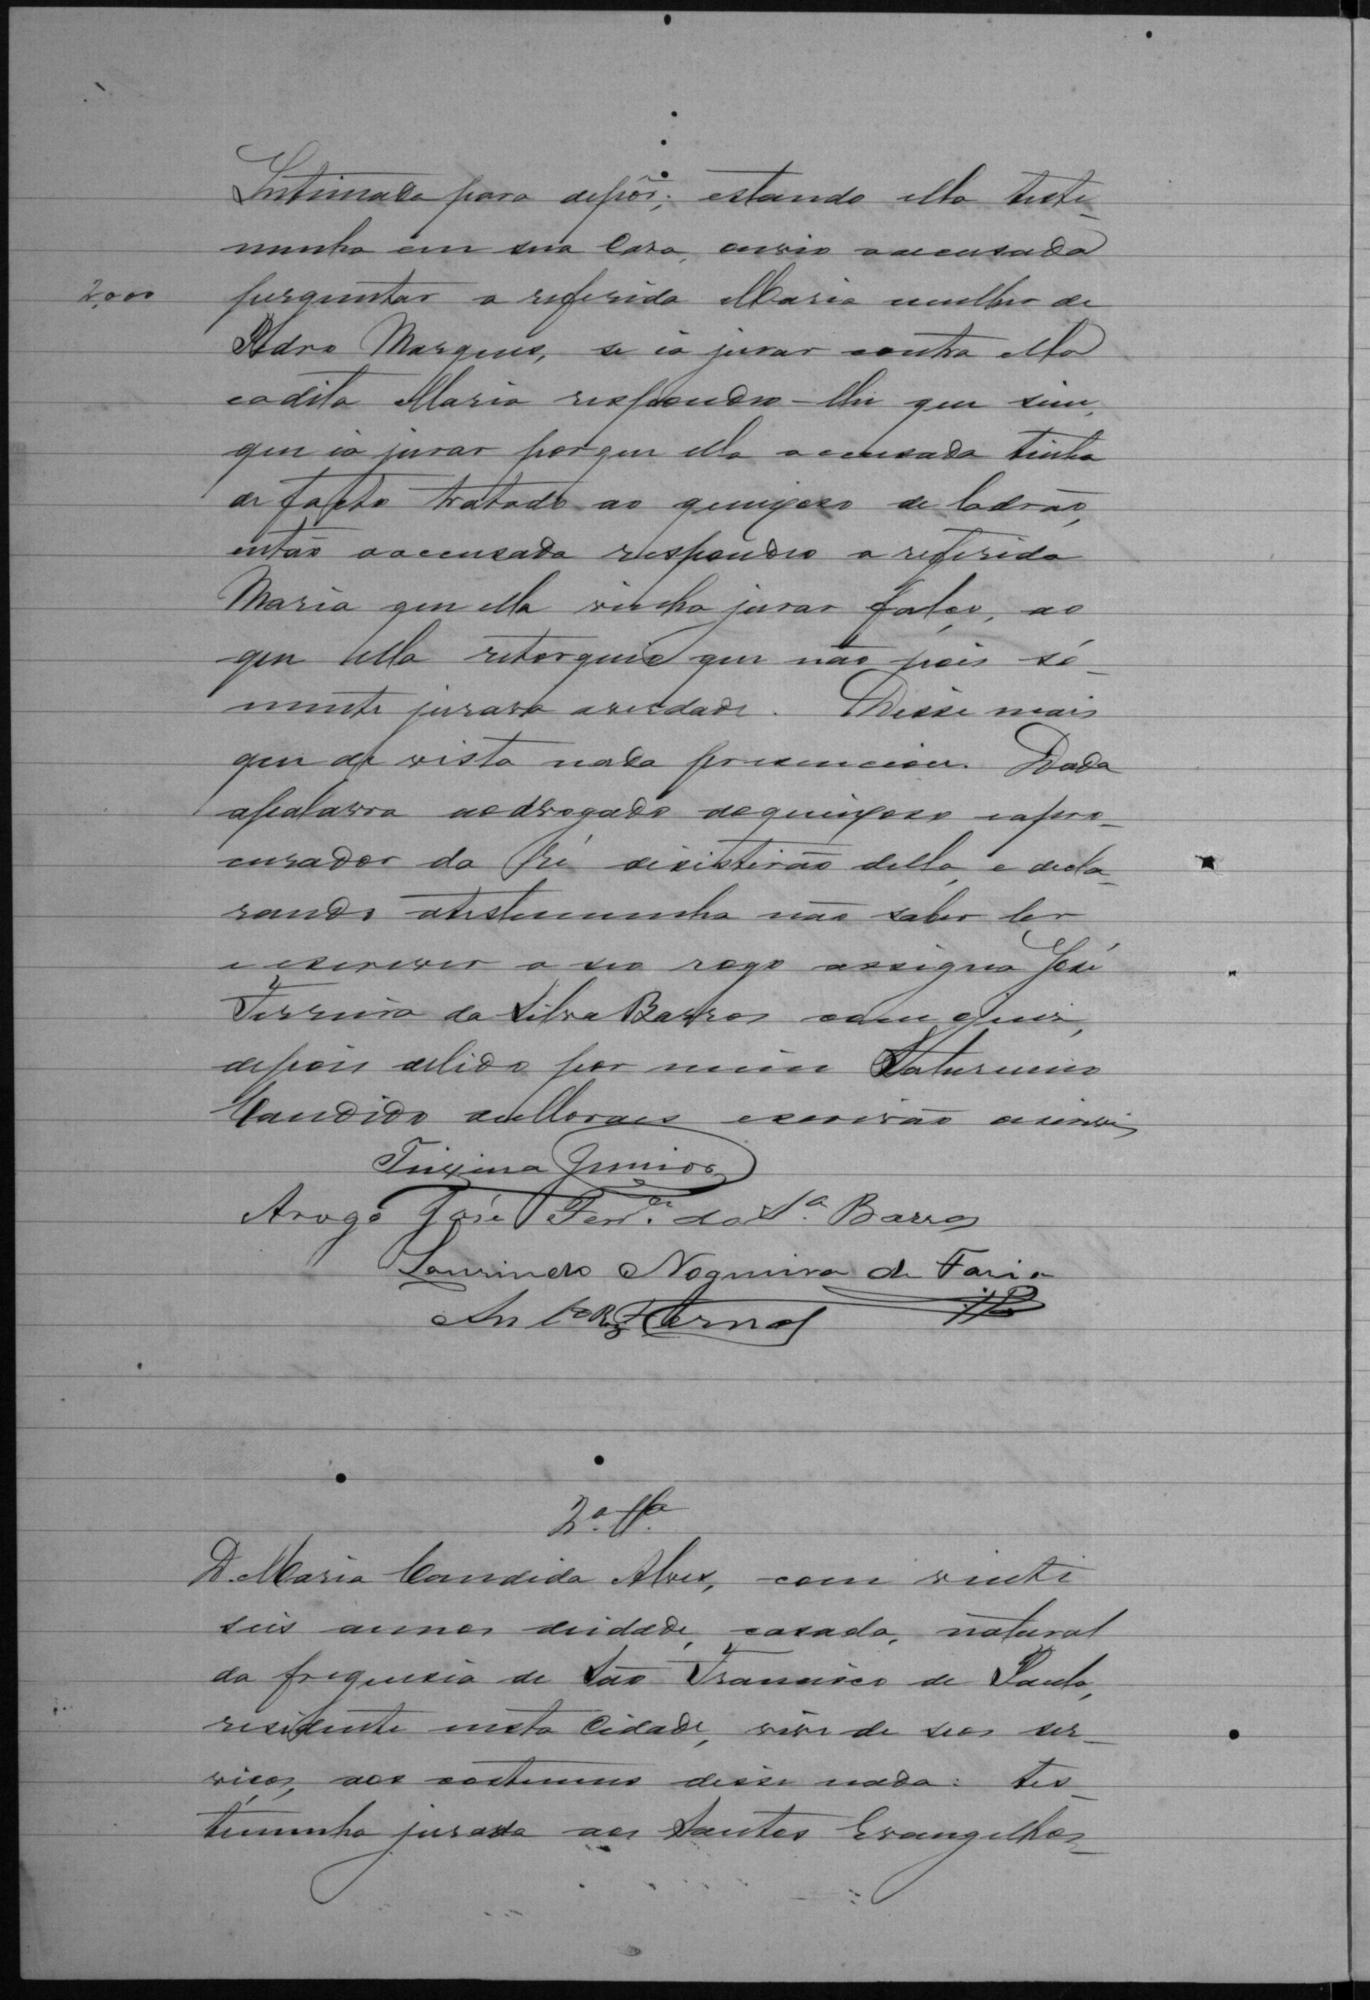 Intimada para depôr; estando ella teste-
munha em sua Casa, ouvio aaccusada
2,000 perguntar a referida Maria mulher de
Pedro Marques, se ia jurar contra ella
eadita Maria respondeo-lhe que sim,
que ia jurar porque ella accusada tinha
de facto tratado ao queixoso de ladrão,
então aaccusada respondeo a referida
Maria que ella vinha jurar falço, ao
que ella retorquio que não pois só-
mente jurava averdade. Disse mais
que de vista nada presenciou. Dada
apalavra aodvogado doqueixoso eapro-
curador da Ré disistirão della, e decla-
rando atestemunha não saber ler
e escrever a seo rogo assigna José
Ferreira da Silva Barros com ojuis,
depois delido por mim Saturnino
Candido deMoraes escrivão oescrevi
Teixeira Junior
Arogo José Ferr.ª da S.ª Barros
Laurindo Nogueira de Faria
2.ª T.ª
D. Maria Candida Alves, com vinte
seis annos deidade, casada, natural
da freguesia de São Francisco de Paula,
residente nesta Cidade, vive de seos ser-
viços, aos costumes disse nada: tes-
temunha jurada aos Santos Evangelhos